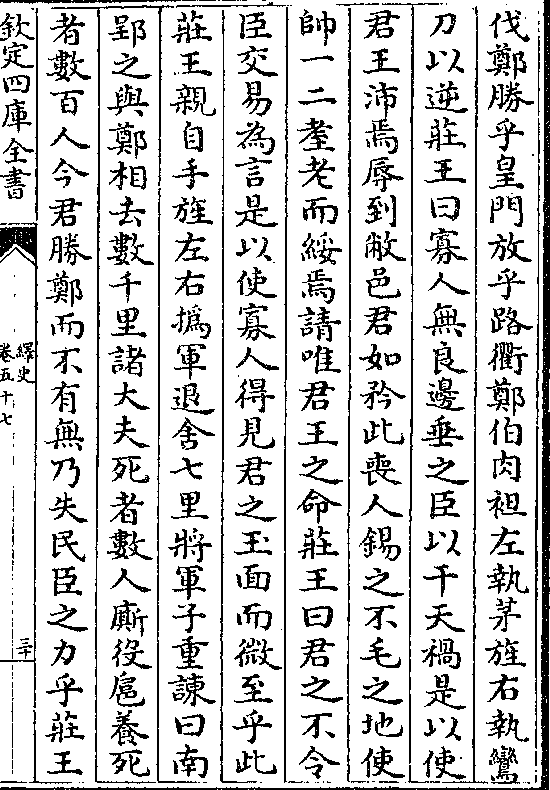 伐鄭勝乎皇門放乎路衢鄭伯肉袒左執茅旌右執鸞
刀以逆莊王曰寡人無良邊垂之臣以干天禍是以使
君王沛焉辱到敝邑君如矜此喪人錫之不毛之地使
帥一二耋老而綏焉請唯君王之命莊王曰君之不令
臣交易為言是以使寡人得見君之玉面而微至乎此
莊王親自手旌左右撝軍退舍七里將軍子重諫曰南
郢之與鄭相去數千里諸大夫死者數人廝役扈養死
者數百人今君勝鄭而不有無乃失民臣之力乎莊王
欽定四庫全書
繹史
卷五十七
三十